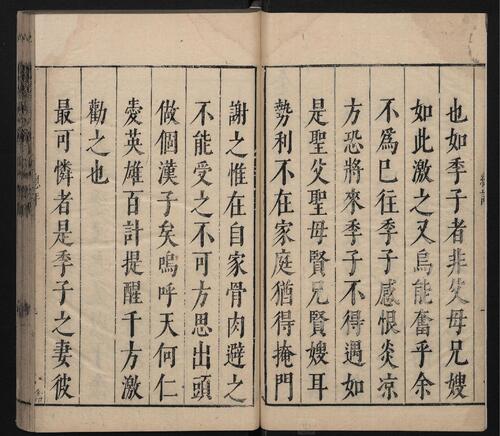 也如季子者非父母兄嫂
如此激之又烏能奮乎余
不爲已往季子感恨炎凉
方恐將來季子不得遇如
是聖父聖母賢兄賢嫂耳
勢利不在家庭猶得掩門
謝之惟在自家骨肉避之
不能受之不可方思出頭
做個漢子矣嗚呼天何仁
愛英雄百計提醒千方激
勸之也
最可憐者是季子之妻彼